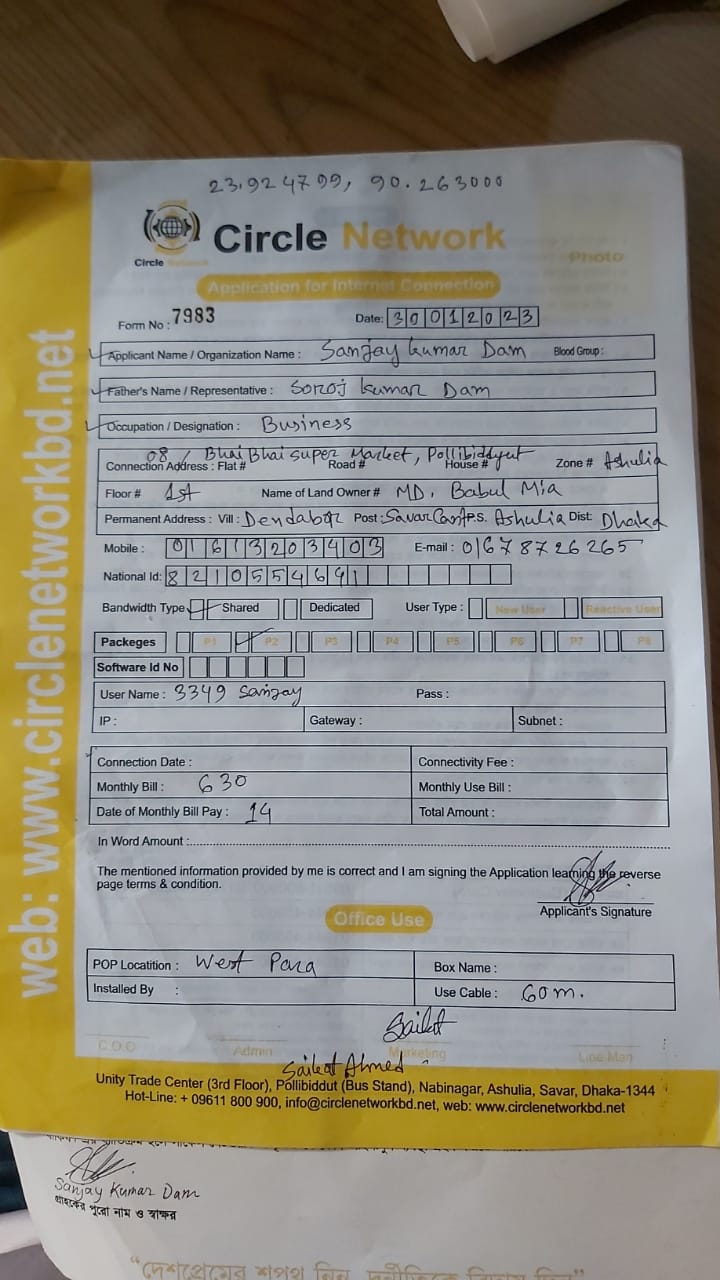 23.924799, 90.263000
Circle Network
Circle Network
Photo
Application for Internet Connection
Form No : 7983 Date: 30012023
Applicant Name / Organization Name : Sanjay Kumar Dam Blood Group :
Father's Name / Representative : Soroj Kumar Dam
Occupation / Designation : Business
08 / Bhai Bhai Super Market, Pollibiddyut
Connection Address : Flat # Road # House # Zone # Ashulia
Floor # 1st Name of Land Owner # MD. Babul Mia
Permanent Address : Vill : Dendabor Post : Savar Cant P.S. Ashulia Dist: Dhaka
Mobile : 01613203403 E-mail : 01678726265
National Id: 8210554691
Bandwidth Type Shared Dedicated User Type : New User Reactive User
Packeges P1 P2 P3 P4 P5 P6 P7 P8
Software Id No
User Name : 3349 Sanjay Pass :
IP : Gateway : Subnet :
Connection Date : Connectivity Fee :
Monthly Bill : 630 Monthly Use Bill :
Date of Monthly Bill Pay : 14 Total Amount :
In Word Amount :
The mentioned information provided by me is correct and I am signing the Application learning the reverse
page terms & condition.
Applicant's Signature
Office Use
POP Locatition : West Para Box Name :
Installed By : Use Cable : 60m.
Saikat
C.O.O Admin Marketing Line Man
Saikat Ahmed
Unity Trade Center (3rd Floor), Pollibiddut (Bus Stand), Nabinagar, Ashulia, Savar, Dhaka-1344
Hot-Line: + 09611 800 900, info@circlenetworkbd.net, web: www.circlenetworkbd.net
web: www.circlenetworkbd.net
Sanjay Kumar Dam
গ্রাহকের পুরো নাম ও স্বাক্ষর
"দেশপ্রেমের শপথ নিন, দুর্নীতিকে বিদায় দিন"